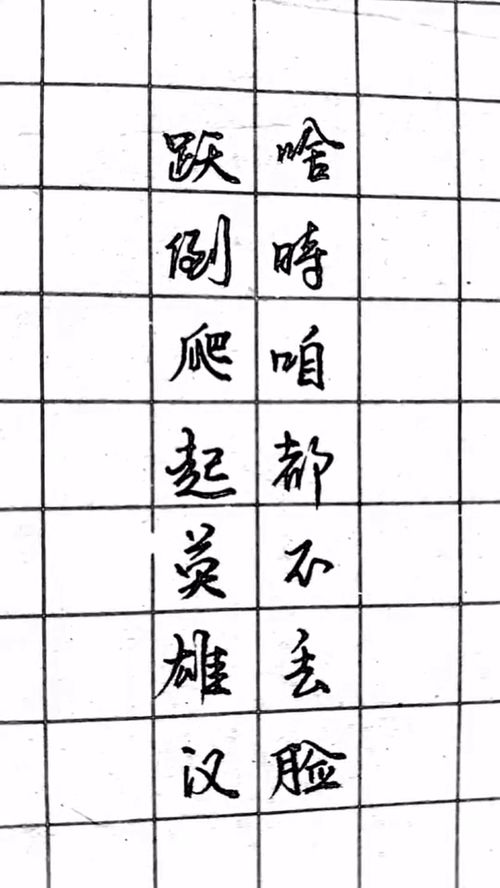 啥時咱都不丢脸
跌倒爬起英雄汉